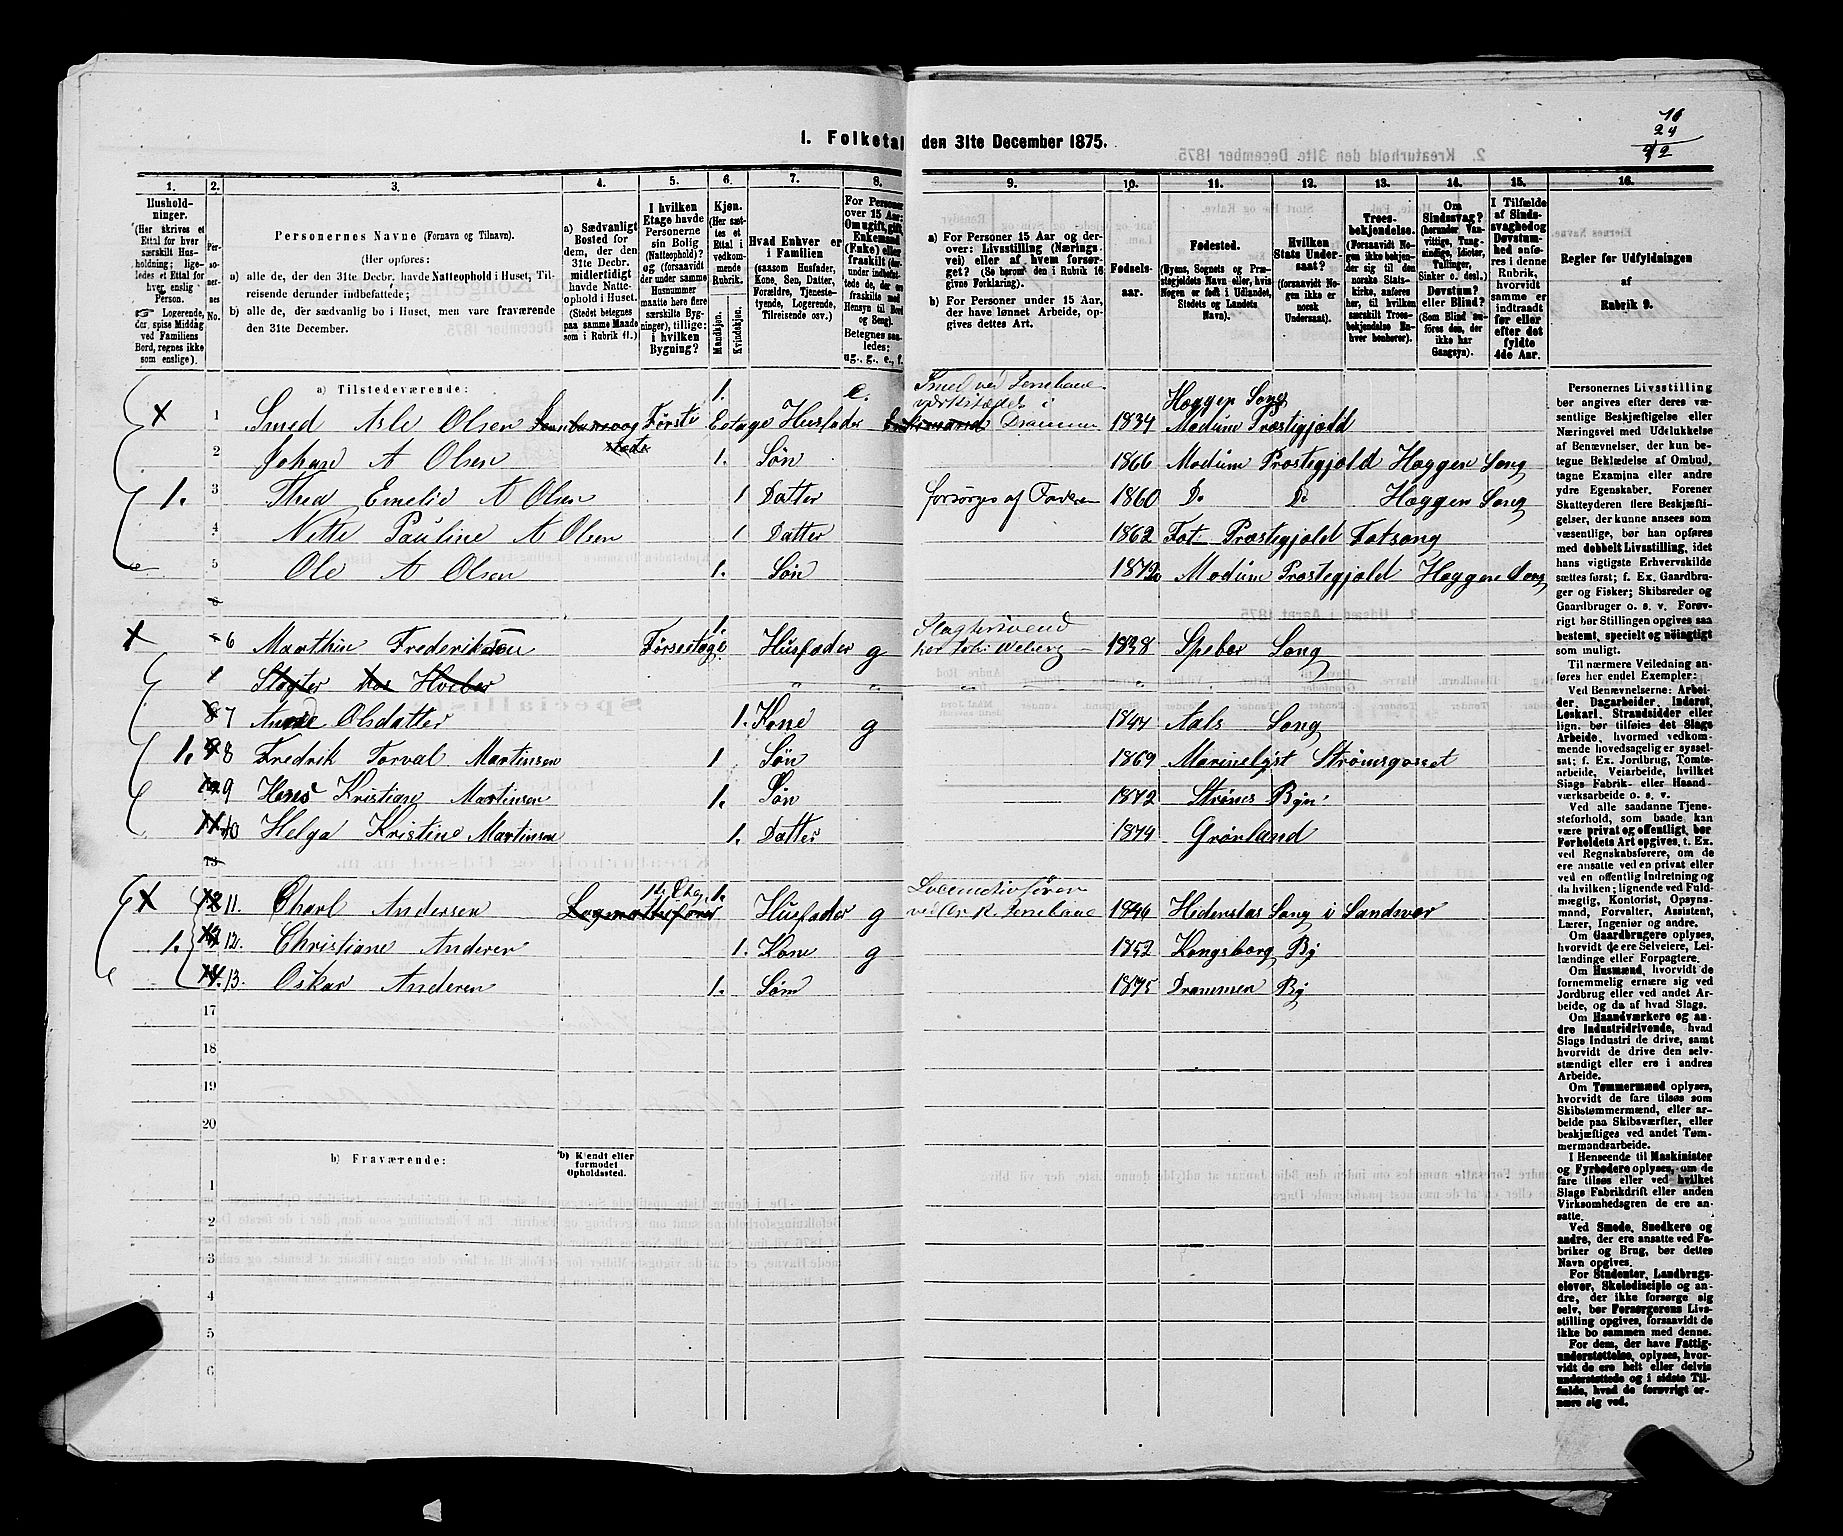 1. Folketal den 31te December 1875.
16
24
42
1. 2. 3. 4. 5. 6. 7. 8. 9. 10. 11. 12. 13. 14. 15. 16.
Husholdninger.
(Her skrives et
Ettal for hver
særskilt Husholdning;
ligeledes et Ettal for
hver enslig
Person.
Logerende,
der spise Middag
ved Familiens
Bord, regnes ikke
som enslige.)
Personernes No.
Personernes Navne (Fornavn og Tilnavn).
(Her opføres:
a) alle de, der den 31te Decbr. havde Natteophold i Huset, Tilreisende derunder indbefattede;
b) alle de, der sædvanlig bo i Huset, men vare fraværende
den 31te December.
a) Sædvanligt
Bosted for
dem, der den
31te Decbr.
midlertidigt
havde Natteophold
i Huset.
(Stedet betegnes
paa samme Maade
som i Rubrik 11.)
I hvilken
Etage havde
Personerne
sin Bolig
(Natteophold)?
og (forsaavidt
der under samme
Husnummer
maatte høre flere
særskilte Bygninger),
tillige:
i hvilken
Bygning?
Kjøn.
(Her sættes
et
Ettal i
vedkommende
Rubrik.
Mandkjøn.
Kvindekjøn.
Hvad Enhver er
i Familien
(saasom Husfader,
Kone, Søn, Datter,
Forældre, Tjenestetyende,
Logerende,
Tilreisende osv.)
For Personer
over 15 Aar:
Om ugift, gift,
Enkemand
(Enke) eller
fraskilt
Betegnes saaledes:
ug., g., e., f.
a) For Personer 15 Aar og derover:
Livsstilling (Næringsvei)
eller af hvem forsørget?
(Se herom den i Rubrik 16
givne Forklaring.)
b) For Personer under 15 Aar,
der have lønnet Arbeide, opgives
dettes Art.
Fødselsaar.
Fødested.
(Byens, Sognets og Præstegjeldets
Navn eller, hvis
Nogen er født i Udlandet,
Stedets og Landets
Navn).
Hvilken
Stats Undersaat?
(forsaavidt Nogen
ikke er
norsk
Undersaat).
Troesbekjendelse.
(Forsaavidt Nogen
ikke bekjender
sig til den
norske Statskirke,
anføres
her, til hvilken
særskilt Troesbekjendelse
Enhver
henhører).
Om
Sindssvag?
(herunder Vanvittige,
Tungsindige,
Idioter,
Tullinger,
Sinker o. desl.)
Døvstum?
eller Blind?
(Som Blind anføres
den, der
ikke har
Gangsyn).
I Tilfælde
af Sindssvaghed
og
Døvstumhed
anføres
i denne
Rubrik,
hvorvidt
samme er
indtraadt
før eller
efter det
fyldte
4de Aar.
Regler for Udfyldningen
af
Rubrik 9.
a) Tilstedeværende:
1 Smed Asle Olsen Første Eetage 1. Husfader e. Smed ved Jernbane værkstædet i Drammen 1834 Heggen Sogn Modum Præstigjeld
2 Johan A Olsen 1. Søn 1866 Modum Præstigjeld Heggen Song
1. 3 Thea Emelie A Olsen 1 Datter forsørges af Faderen 1860 Do Do Heggen Song
4 Nette Pauline A Olsen 1 Datter 1862 Fos Præstigjeld Fossong
5 Ole A Olsen 1. Søn 1872 Modum Præstegjeld Heggen Song
6 Marthin Frederiksen Førsetage 1. Husfader g Slagtersvend 1838 Song
Slagter
7 Anne Olsdatter 1. Kone g 1844 Aals Song
1. 8 Fredrik Torval Martinsen 1 Søn 1869 Marienlyst Strømsgosset
9 Hans Kristian Martinsen 1. Søn 1872 Strømsø Byn
10 Helga Kristine Martinsen 1. Datter 1874 Grønland
11. Charl Andersen 1ste Etag. 1. Husfader g Locomotivfører 1846 Hedenstad Song i Sandsvær
1. 12. Christiane Anderen 1. Kone g 1852 Kongsberg By
13. Oskar Anderen 1. Søn 1875 Drammen By
17
18
19
20
b) Fraværende:
b) Kjendt eller
formodet
Opholdssted.
1
2
3
4
5
6
Personernes Livsstilling
bør angives efter deres væsentlige
Beskjæftigelse eller
Næringsvei med Udelukkelse
af Benævnelser, der kun betegne
Beklædelse af Ombud,
tagne Examina eller andre
ydre Egenskaber. Forener
Skatteyderen flere Beskjæftigelser,
der kunne ansees som
væsentlige, bør han opføres
med dobbelt Livsstilling, idet
hans vigtigste Erhvervskilde
sættes først; f. Ex. Gaardbruger
og Fisker; Skibsreder og
Gaardbruger o. s. v. Forøvrigt
bør Stillingen opgives saa
bestemt, specielt og nøiagtigt
som muligt.
Til nærmere Veiledning anføres
her endel Exempler:
Ved Benævnelserne: Arbeider,
Dagarbeider, Inderst,
Løskarl, Strandsidder eller
lign. bør tilføies det Slags
Arbeide, hvormed vedkommende
hovedsagelig er sysselsat;
f. Ex. Jordbrug, Tomtearbeide,
Veiarbeide, hvilket
Slags Fabrik- eller Haandværksarbeide
o. s. v.
Ved alle saadanne Tjenesteforhold,
som baade kan
være privat og offentligt, bør
Forholdets Art opgives, t. Ex.
ved Regnskabsførere, om de
ere ansatte ved en privat eller
ved en offentlig Indretning og
da hvilken; lignende ved Fuldmægtig,
Kontorist, Opsynsmand,
Forvalter, Assistent,
Lærer, Ingeniør og andre.
Om Gaardbrugere oplyses,
hvorvidt de ere Selveiere, Leilændinge
eller Forpagtere.
Om Husmænd, hvorvidt de
fornemmelig ernære sig ved
Jordbrug eller ved andet Arbeide,
og da af hvad Slags.
Om Haandværkere og andre
Industridrivende, hvad
Slags Industri de drive, samt
hvorvidt de drive den selvstændigt
eller ere i andres
Arbeide.
Om Tømmermænd oplyses,
hvorvidt de fare tilsøs som
Skibstømmermænd, eller arbeide
paa Skibsværfter, eller
beskjæftiges ved andet Tømmermandsarbeide.
I Henseende til Maskinister
og Fyrbødere oplyses, om de
fare tilsøs eller ved hvilket
Slags Fabrikdrift eller anden
Virksomhedsgren de ere ansatte.
Ved Smede, Snedkere og
andre, der ere ansatte ved Fabriker
og Brug, bør dettes
Navn opgives.
For Studenter, Landbrugselever,
Skoledisciple og andre,
der ikke forsørge sig
selv, bør Forsørgerens Livsstilling
opgives, forsaavidt de
ikke bo sammen med denne.
For dem, der have Fattigunderstøttelse,
oplyses, hvorvidt
de ere helt eller delvis
understøttede og i sidste Tilfælde,
hvad de forøvrigt ernære
sig ved.